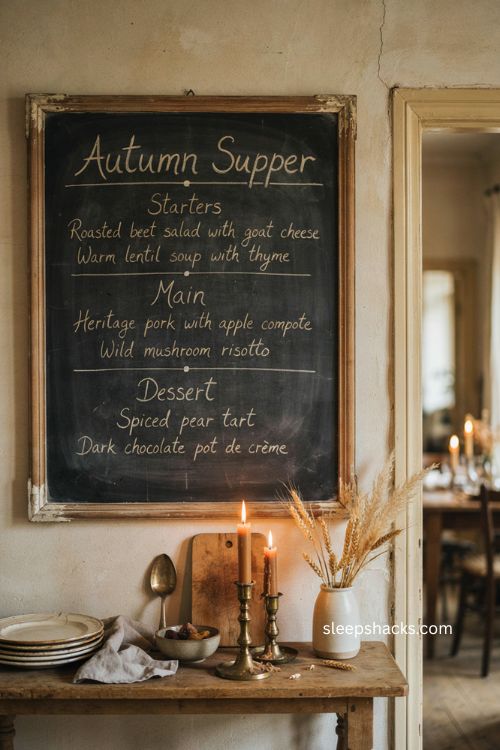 Autumn Supper
Starters
Roasted beet salad with goat cheese
Warm lentil soup with thyme
Main
Heritage pork with apple compote
Wild mushroom risotto
Dessert
Spiced pear tart
Dark chocolate pot de crème
sleepshacks.com